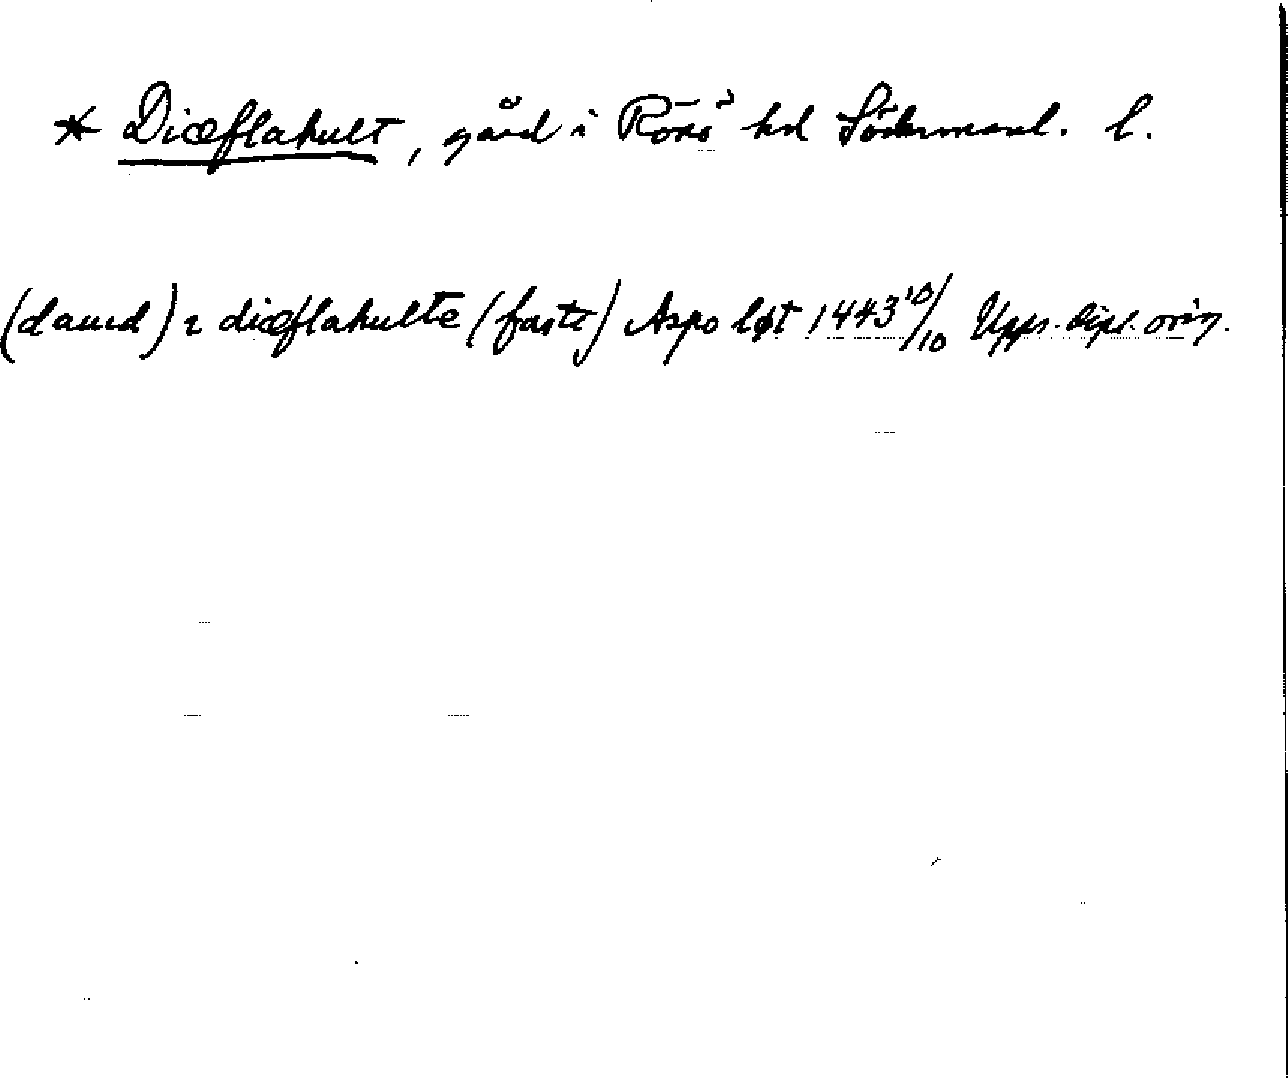 * Diæflahult, gård i Rönö hd Södermanl. l.
(dauid) i diæflahulte (faste) Aspo løt 1443 10/10 Upps. dipl. orig.